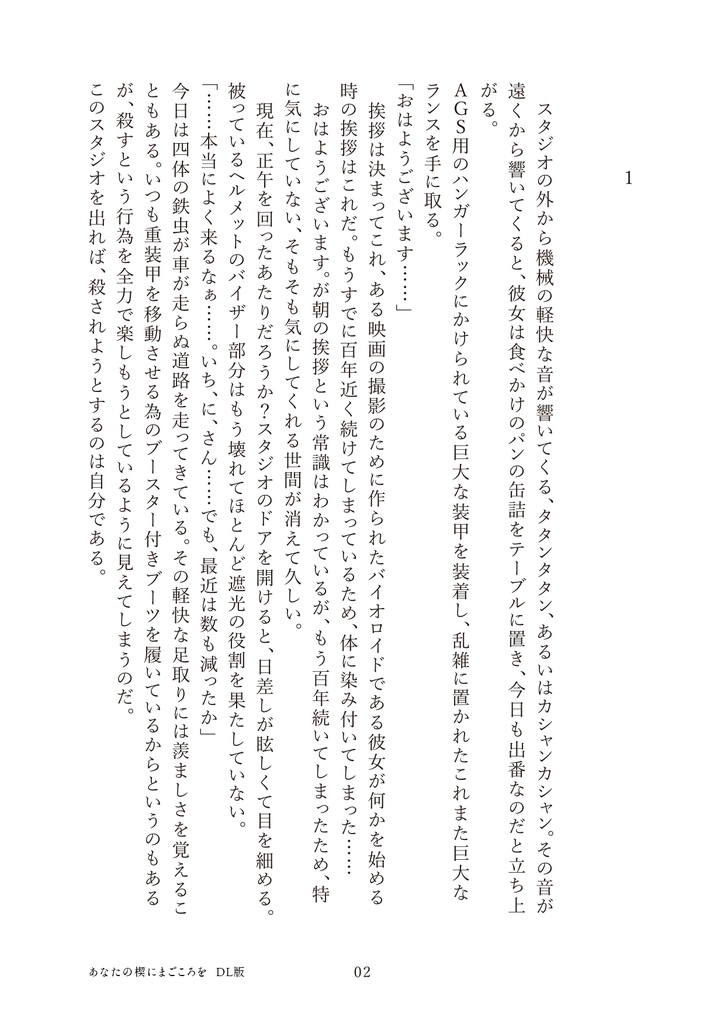 1
　スタジオの外から機械の軽快な音が響いてくる、タタンタタン、あるいはカシャンカシャン。その音が
遠くから響いてくると、彼女は食べかけのパンの缶詰をテーブルに置き、今日も出番なのだと立ち上
がる。
　AGS用のハンガーラックにかけられている巨大な装甲を装着し、乱雑に置かれたこれまた巨大な
ランスを手に取る。
「おはようございます……」
　挨拶は決まってこれ、ある映画の撮影のために作られたバイオロイドである彼女が何かを始める
時の挨拶はこれだ。もうすでに百年近く続けてしまっているため、体に染み付いてしまった……
　おはようございます。が朝の挨拶という常識はわかっているが、もう百年続いてしまったため、特
に気にしていない、そもそも気にしてくれる世間が消えて久しい。
　現在、正午を回ったあたりだろうか？スタジオのドアを開けると、日差しが眩しくて目を細める。
被っているヘルメットのバイザー部分はもう壊れてほとんど遮光の役割を果たしていない。
「……本当によく来るなぁ……。いち、に、さん……でも、最近は数も減ったか」
　今日は四体の鉄虫が車が走らぬ道路を走ってきている。その軽快な足取りには羨ましさを覚えるこ
ともある。いつも重装甲を移動させる為のブースター付きブーツを履いているからというのもある
が、殺すという行為を全力で楽しもうとしているように見えてしまうのだ。
このスタジオを出れば、殺されようとするのは自分である。
あなたの楔にまごころを　DL版
02